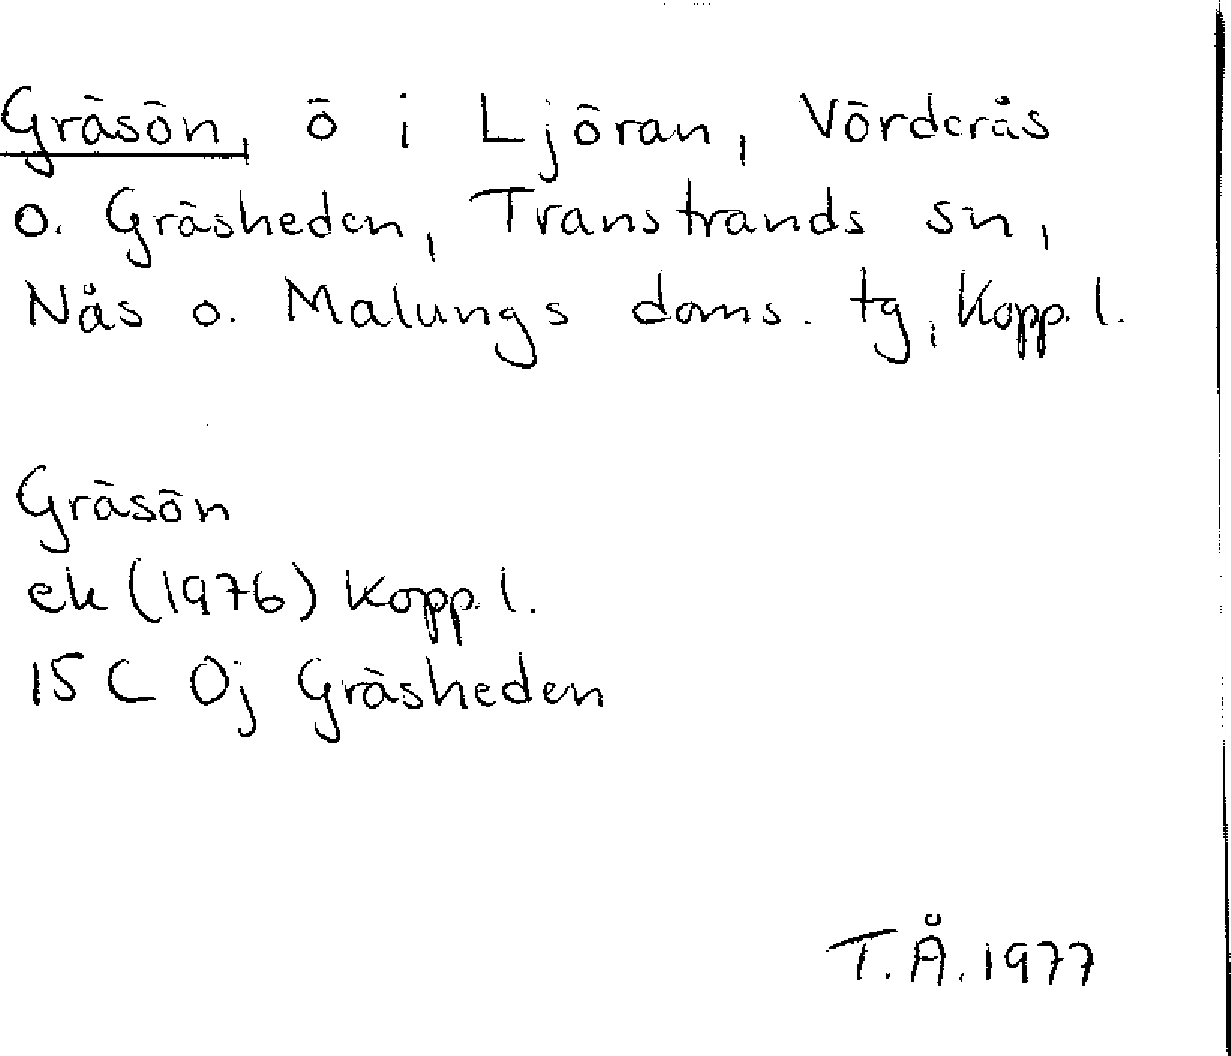 Gräsön, ö i Ljöran, Vörderås
o. Gräsheden, Transtrands sn,
Nås o. Malungs doms. tg, Kopp. l.
Gräsön
ek (1976) Kopp. l.
15 C 0j Gräsheden
T.Å. 1977